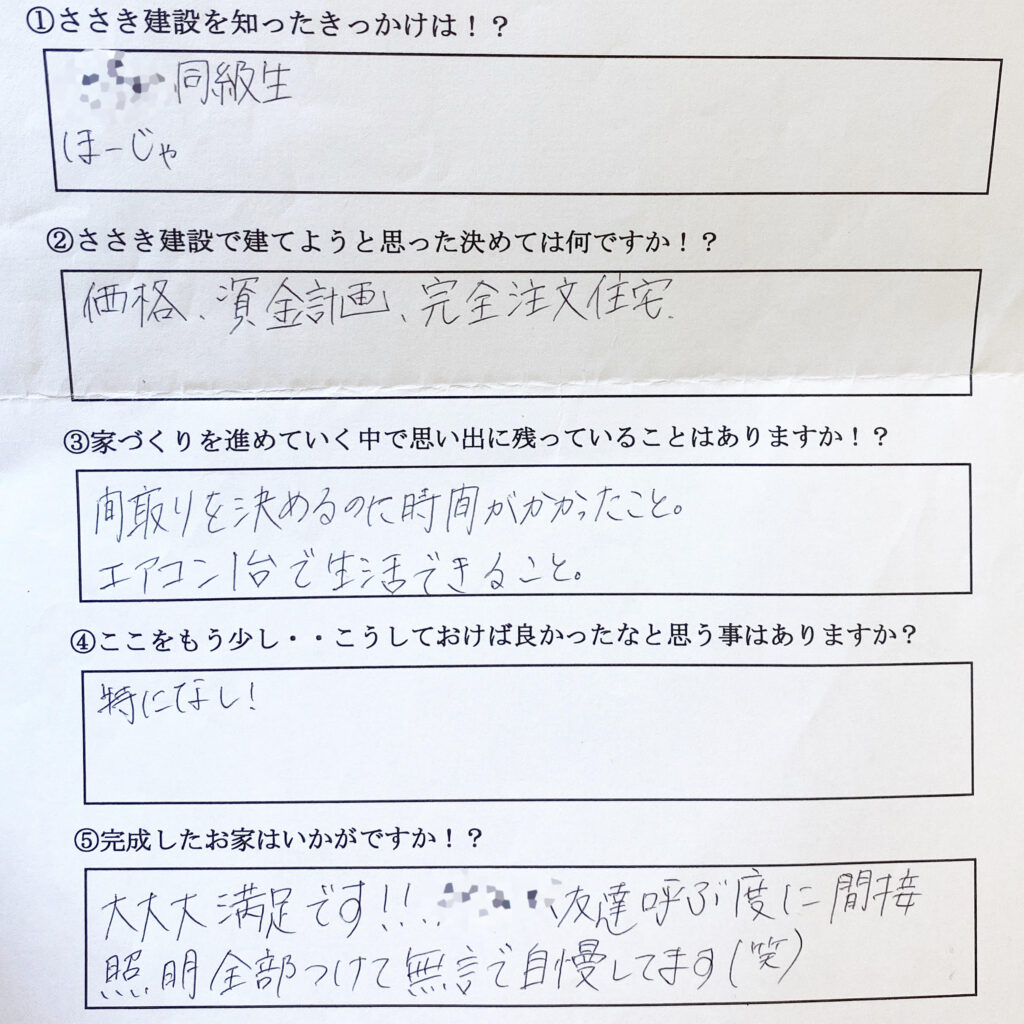 ①ささき建設を知ったきっかけは！？
同級生
ほーじゃ
②ささき建設で建てようと思った決めては何ですか！？
価格、資金計画、完全注文住宅.
③家づくりを進めていく中で思い出に残っていることはありますか！？
間取りを決めるのに時間がかかったこと。
エアコン1台で生活できること。
④ここをもう少し・・こうしておけば良かったなと思う事はありますか？
特になし！
⑤完成したお家はいかがですか！？
大大大満足です！！ 友達呼ぶ度に間接
照明全部つけて無言で自慢してます(笑)